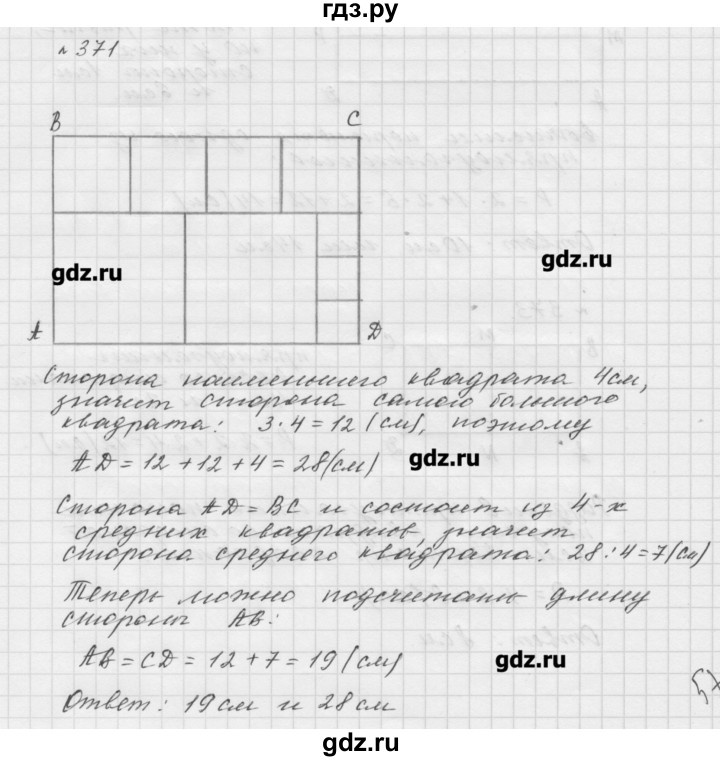 гдз.ру
№ 371
B C
gdz.ru
gdz.ru
A D
Сторона наименьшего квадрата 4см,
значит сторона самого большого
квадрата: 3·4=12 (см), поэтому
AD=12+12+4=28(см)
gdz.ru
Сторона AD=BC и состоит из 4-х
средних квадратов, значит
сторона среднего квадрата: 28:4=7(см)
Теперь можно подсчитать длину
стороны AB:
AB=CD=12+7=19(см)
gdz.ru
Ответ: 19см и 28см
gdz.ru